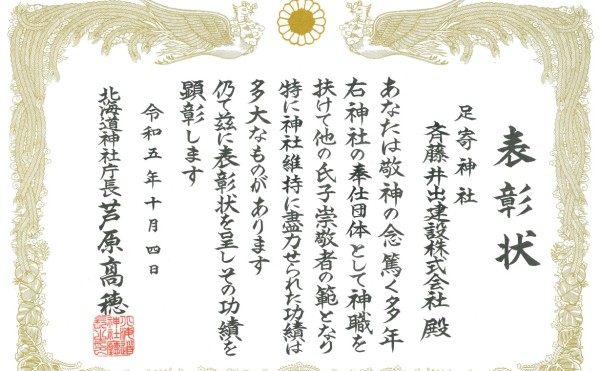 表彰状
足寄神社
斉藤井出建設株式会社 殿
あなたは敬神の念篤く多年
右神社の奉仕団体として神職を
扶けて他の氏子崇敬者の範となり
特に神社維持に盡力せられた功績は
多大なものがあります
仍て茲に表彰状を呈しその功績を
顕彰します
令和五年十月四日
北海道神社庁長 芦原高穂